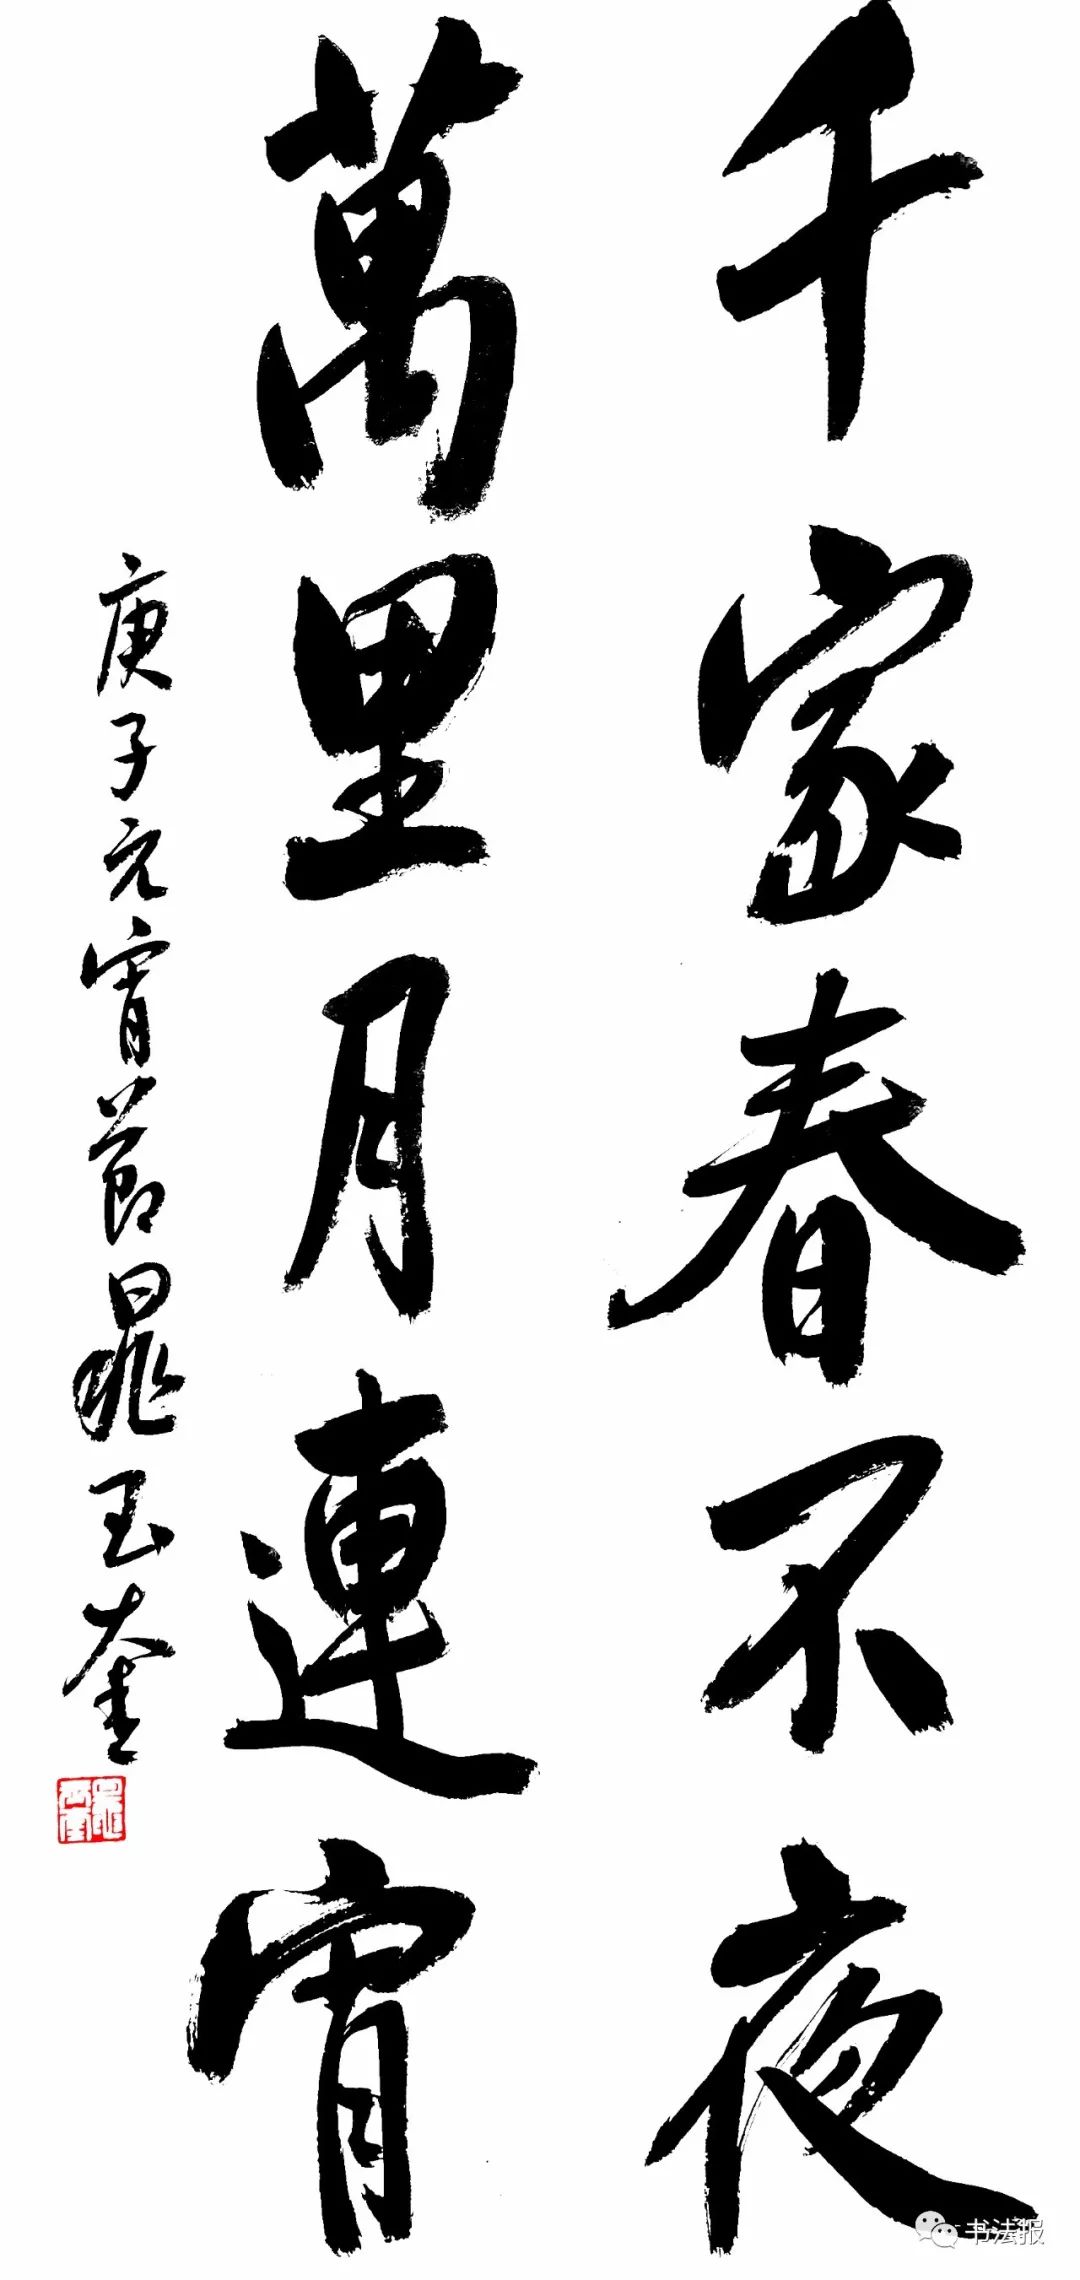 千家春不夜
萬里月連宵
庚子元宵節晁玉奎
书法报